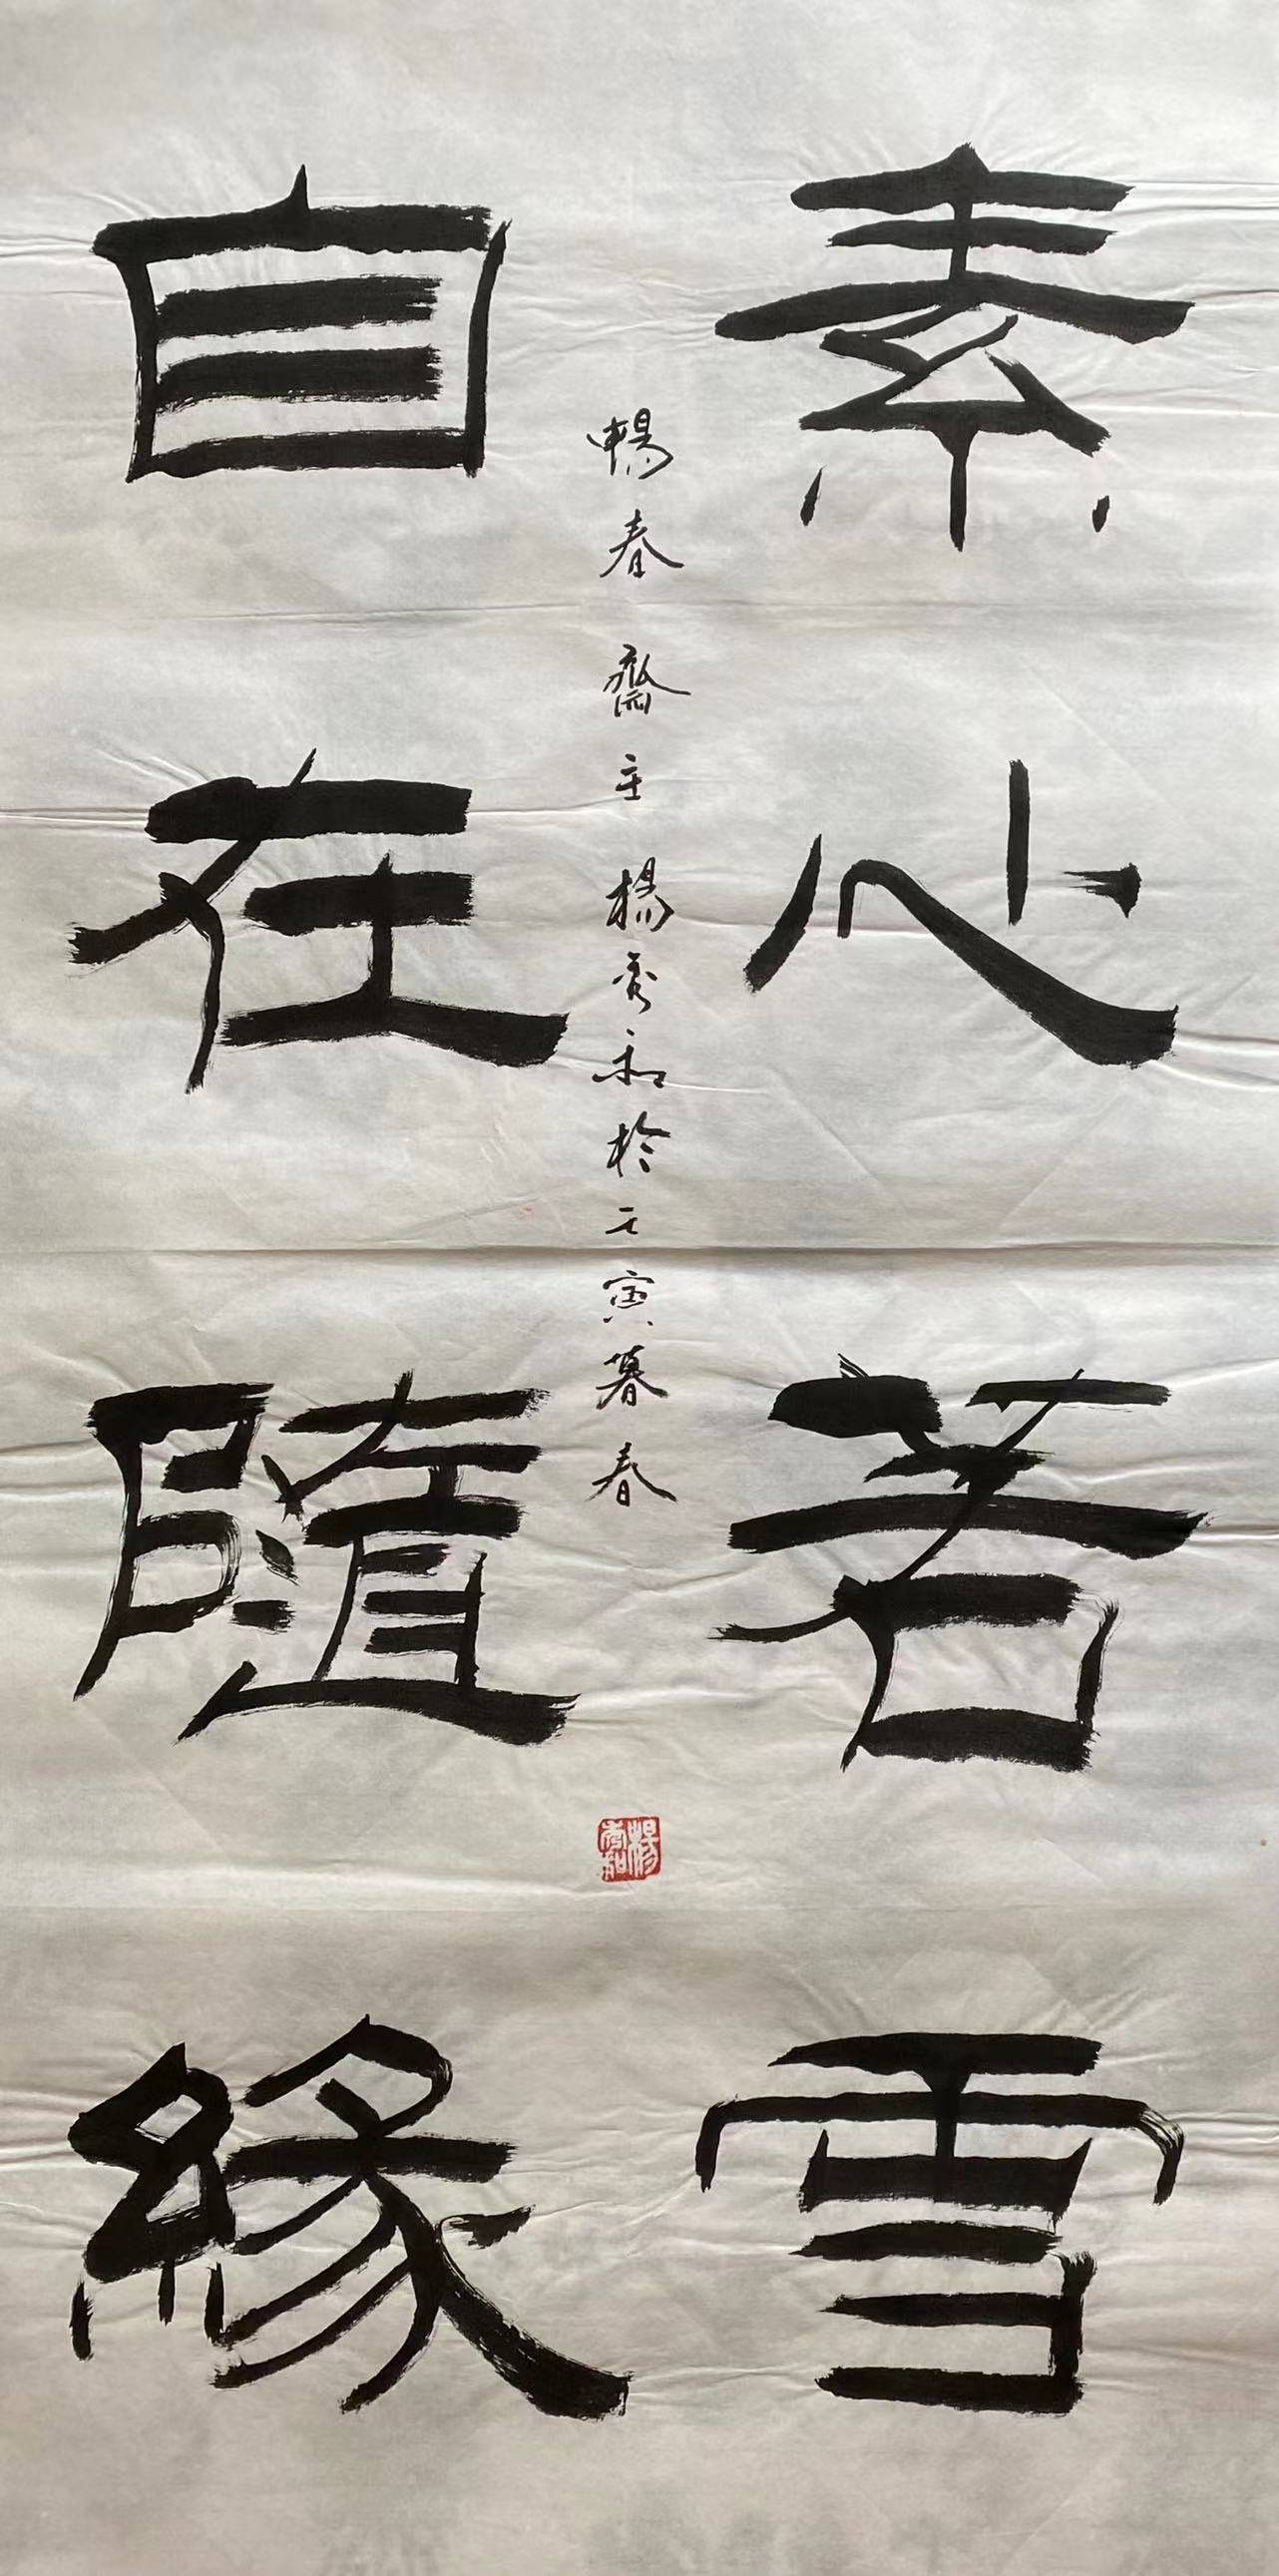 素心若雪
自在隨緣
暢春齋主楊秀和於壬寅暮春
楊秀和